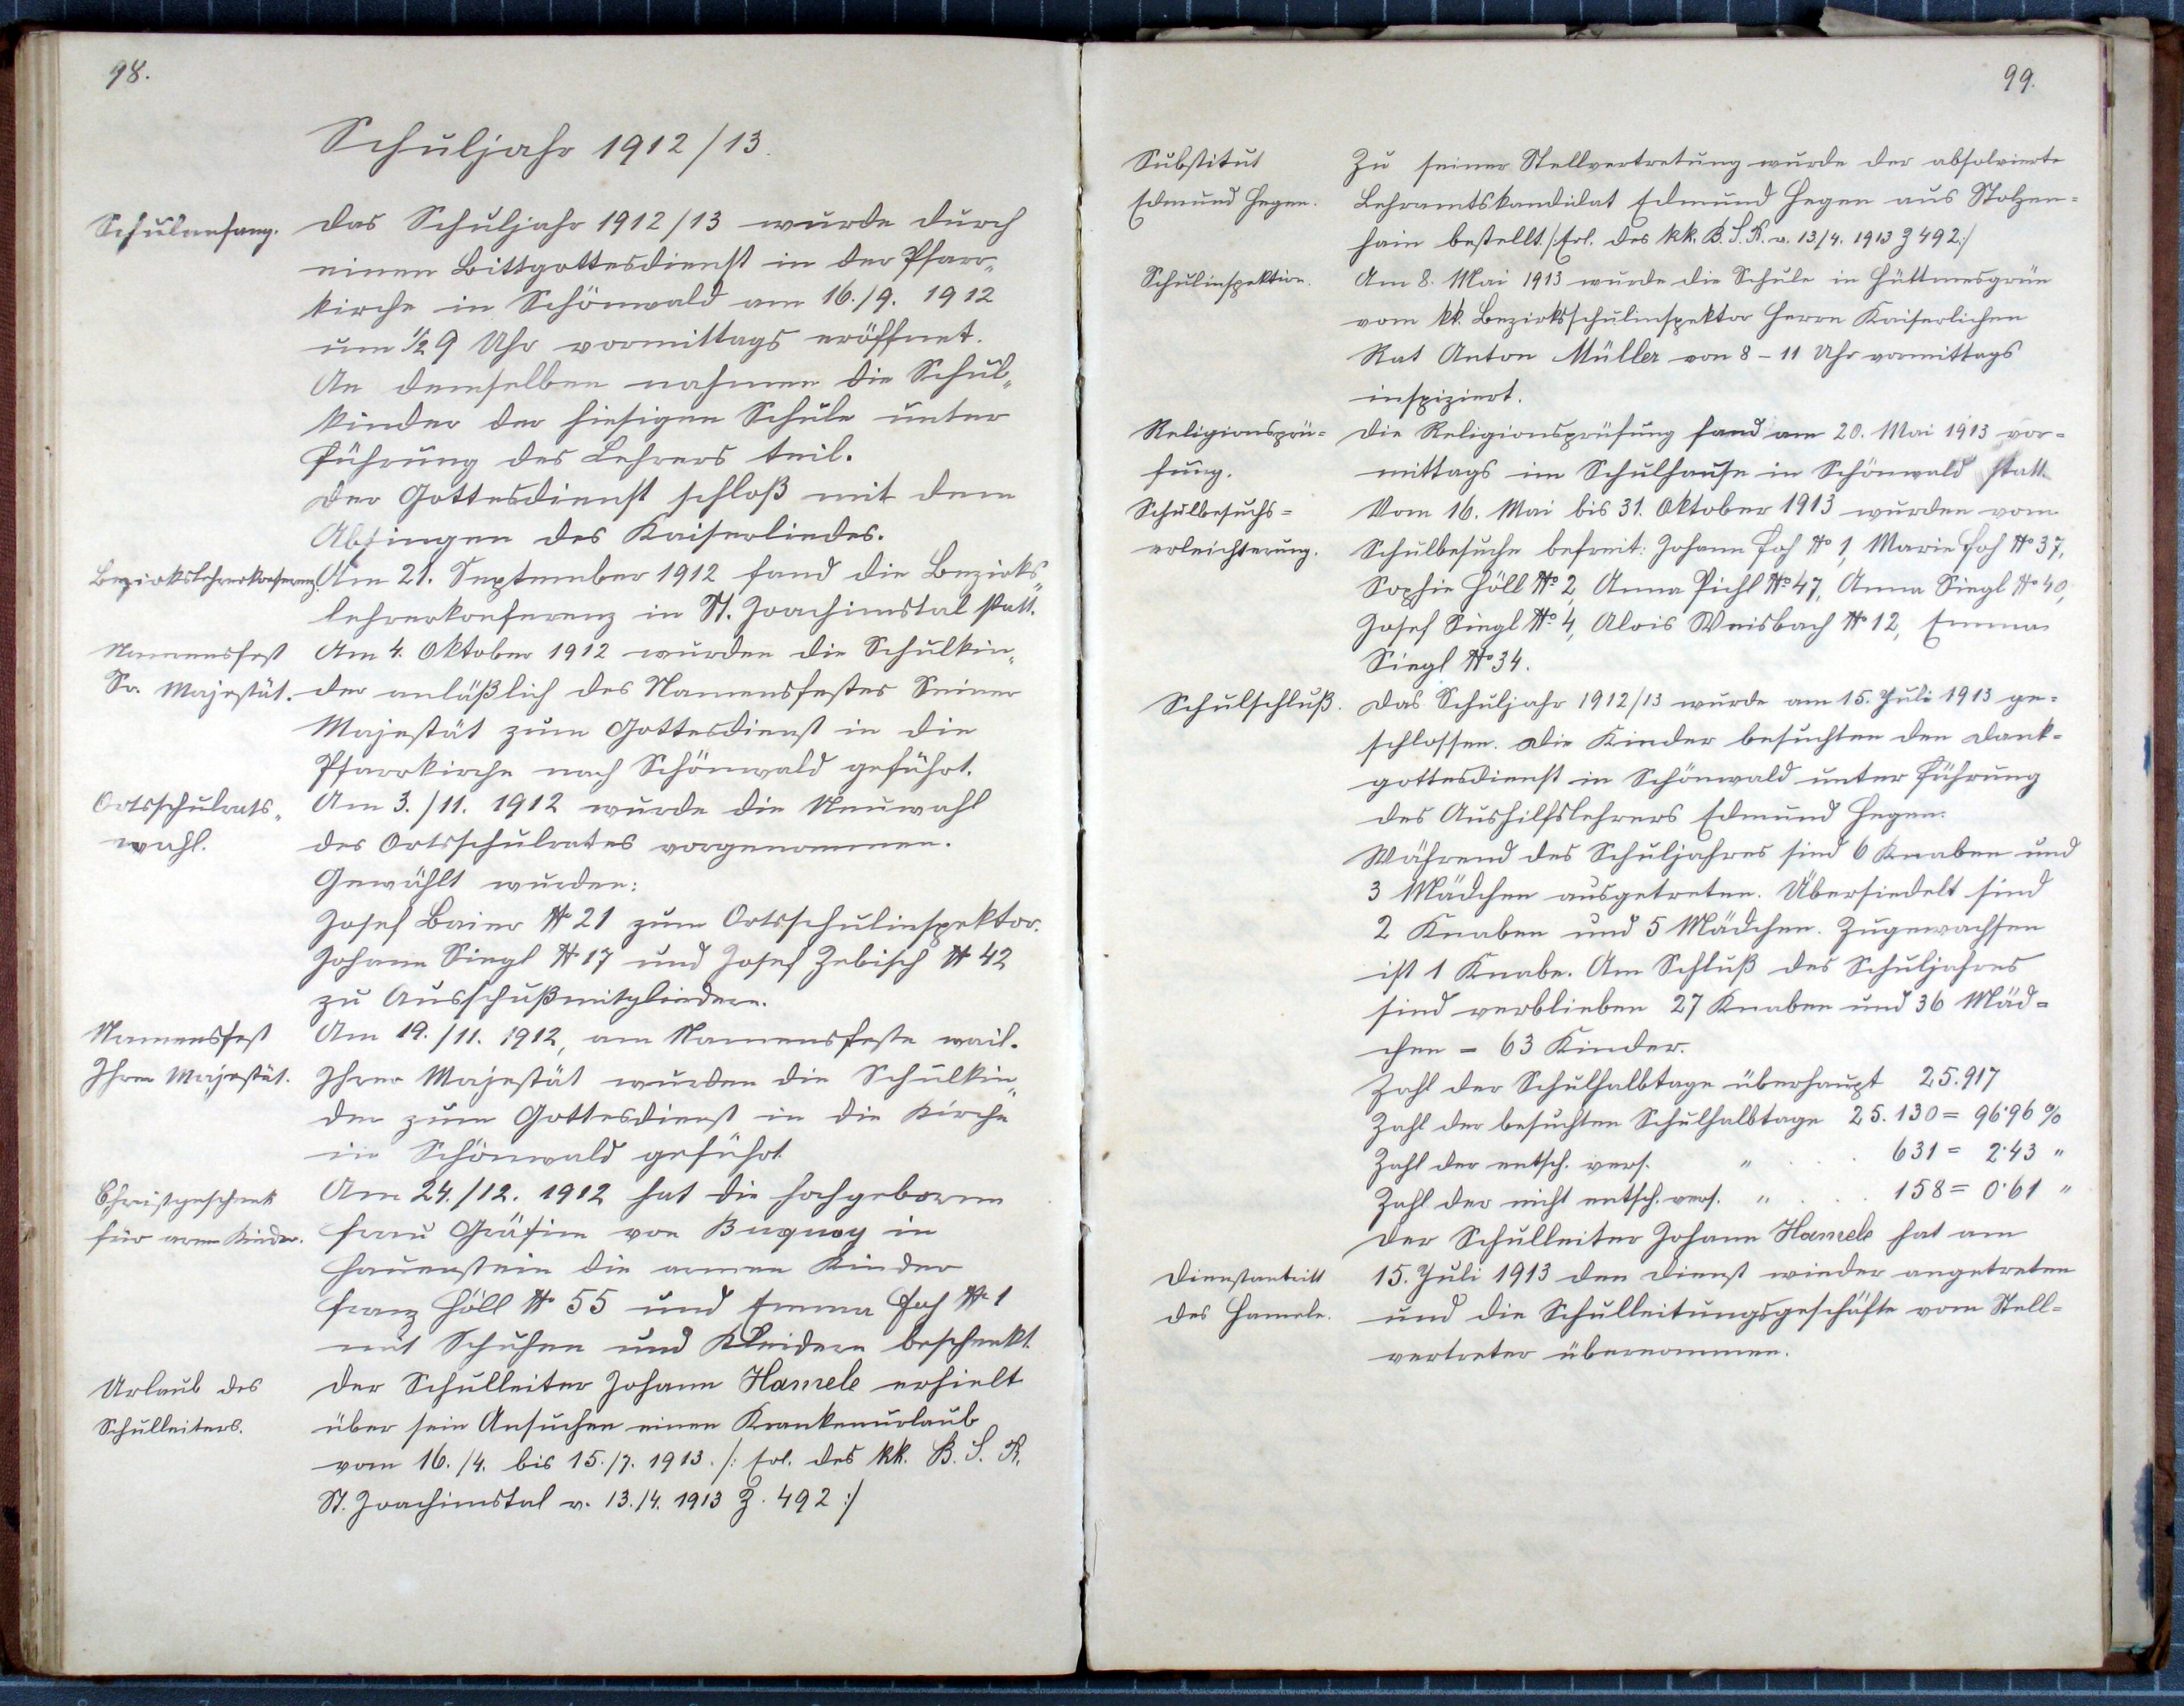 98.
Schuljahr 1912/13.
Schulanfang. Das Schuljahr 1912/13 wurde durch
einen Bittgottesdienst in der Pfarr„
kirche in Schönwald am 16./9. 1912
um ½ 9 Uhr vormittags eröffnet.
An demselben nahmen die Schul„
kinder der hiesigen Schule unter
Führung des Lehrers teil.
Der Gottesdienst schloß mit dem
Absingen des Kaiserliedes.
Bezirkslehrerkonferenz. Am 21. September 1912 fand die Bezirks„
lehrerkonferenz in St. Joachimstal statt.
Namensfest Am 4. Oktober 1912 wurden die Schulkin„
Sr. Majestät. der anläßlich des Namensfestes Seiner
Majestät zum Gottesdienst in die
Pfarrkirche nach Schönwald geführt.
Ortsschulrats„ Am 3./11. 1912 wurde die Neuwahl
wahl. des Ortsschulrates vorgenommen.
Gewählt wurden:
Josef Baier № 21 zum Ortsschulinspektor.
Johann Siegl № 17 und Josef Zebisch № 42
zu Ausschußmitgliedern.
Namensfest Am 19./11. 1912, am Namensfeste weil.
Ihrer Majestät. Ihrer Majestät wurden die Schulkin„
der zum Gottesdienst in die Kirche
in Schönwald geführt.
Christgeschenk Am 24./12. 1912 hat die hochgeborene
für arme Kinder. Frau Gräfin von Buquoy in
Hauenstein die armen Kinder
Franz Höll № 55 und Emma Poh № 1
mit Schuhen und Kleidern beschenkt.
Urlaub des Der Schulleiter Johann Hamele erhielt
Schulleiters. über sein Ansuchen einen Krankenurlaub
vom 16./4. bis 15./7. 1913. /: Erl. des kk. B. S. R.
St. Joachimstal v. 13./4. 1913 Z. 492 :/
99.
Substitut Zu seiner Stellvertretung wurde der absolvierte
Edmund Hegen. Lehramtskandidat Edmund Hegen aus Stolzen=
hain bestellt /:Erl. des kk. B. S. R. v. 13./4. 1913 Z 492:/
Schulinspektion. Am 8. Mai 1913 wurde die Schule in Hüttmesgrün
vom kk. Bezirksschulinspektor Herrn Kaiserlichen
Rat Anton Müller von 8 – 11 Uhr vormittags
inspiziert.
Religionsprü= Die Religionsprüfung fand am 20. Mai 1913 vor=
fung. mittags im Schulhause in Schönwald statt.
Schulbesuchs= Vom 16. Mai bis 31. Oktober 1913 wurden vom
erleichterung. Schulbesuche befreit: Johann Poh № 1, Marie Poh № 37,
Sophie Höll № 2, Anna Pichl № 47, Anna Siegl № 40,
Josef Siegl № 4, Alois Weisbach № 12, Emma
Siegl № 34.
Schulschluß. Das Schuljahr 1912/13 wurde am 15. Juli 1913 ge=
schlossen. Die Kinder besuchten den Dank=
gottesdienst in Schönwald unter Führung
des Aushilfslehrers Edmund Hegen.
Während des Schuljahres sind 6 Knaben und
3 Mädchen ausgetreten. Übersiedelt sind
2 Knaben und 5 Mädchen. Zugewachsen
ist 1 Knabe. Am Schluß des Schuljahres
sind verblieben 27 Knaben und 36 Mäd=
chen = 63 Kinder.
Zahl der Schulhalbtage überhaupt 25.917
Zahl der besuchten Schulhalbtage 25.130 = 96·96 %
Zahl der entsch. vers. " . . . 631 = 2·43 "
Zahl der nicht entsch. vers. " . . . 158 = 0·61 "
Der Schulleiter Johann Hamele hat am
Dienstantritt 15. Juli 1913 den Dienst wieder angetreten
des Hamele. und die Schulleitungsgeschäfte vom Stell=
vertreter übernommen.